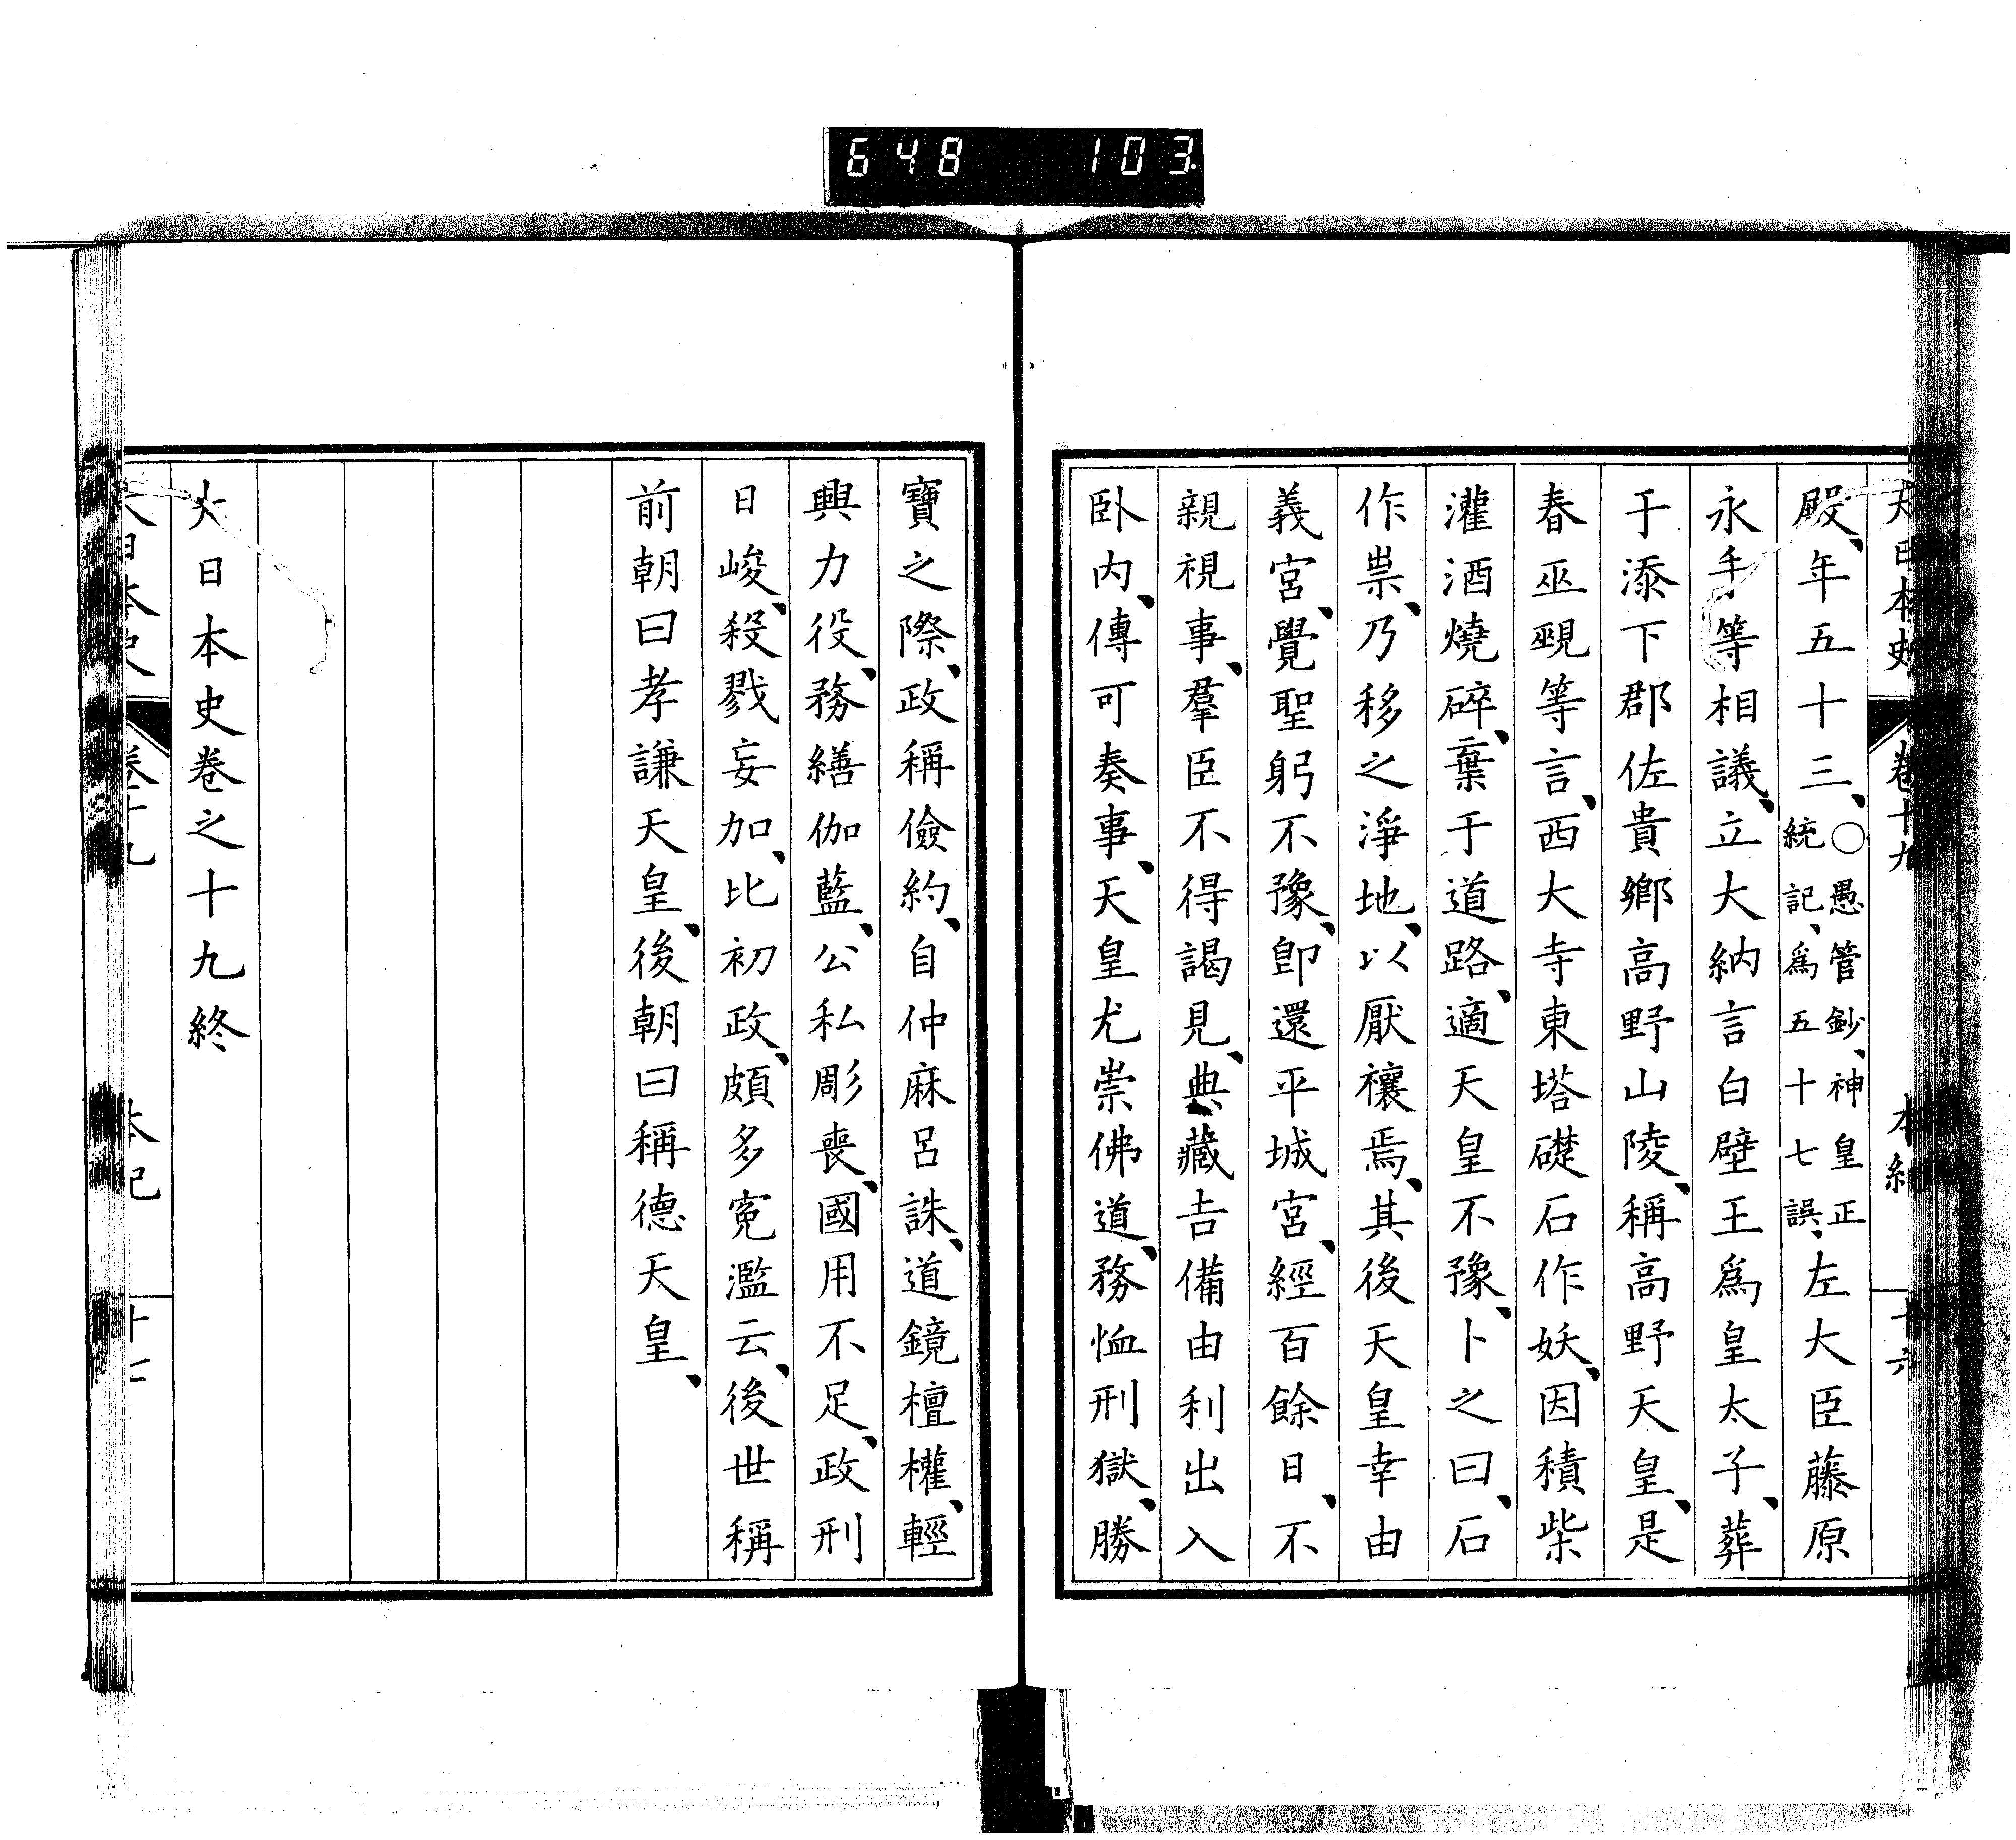 648 103
大日本史 卷十九 本紀 十六
殿、年五十三、○愚管鈔、神皇正統記、爲五十七誤、左大臣藤原
永手等相議、立大納言白壁王爲皇太子、葬
于添下郡佐貴鄉高野山陵、稱高野天皇、是
春巫覡等言、西大寺東塔礎石作妖、因積柴
灌酒燒碎、棄于道路、適天皇不豫、卜之曰、石
作祟、乃移之淨地、以厭禳焉、其後天皇幸由
義宮、覺聖躬不豫、卽還平城宮、經百餘日、不
親視事、羣臣不得謁見、典藏吉備由利出入
臥内、傳可奏事、天皇尤崇佛道、務恤刑獄、勝
寶之際、政稱儉約、自仲麻呂誅、道鏡檀權、輕
興力役、務繕伽藍、公私彫喪、國用不足、政刑
日峻、殺戮妄加、比初政、頗多寃濫云、後世稱
前朝曰孝謙天皇、後朝曰稱德天皇、
大日本史卷之十九終
大日本史 卷十九 本紀 十七